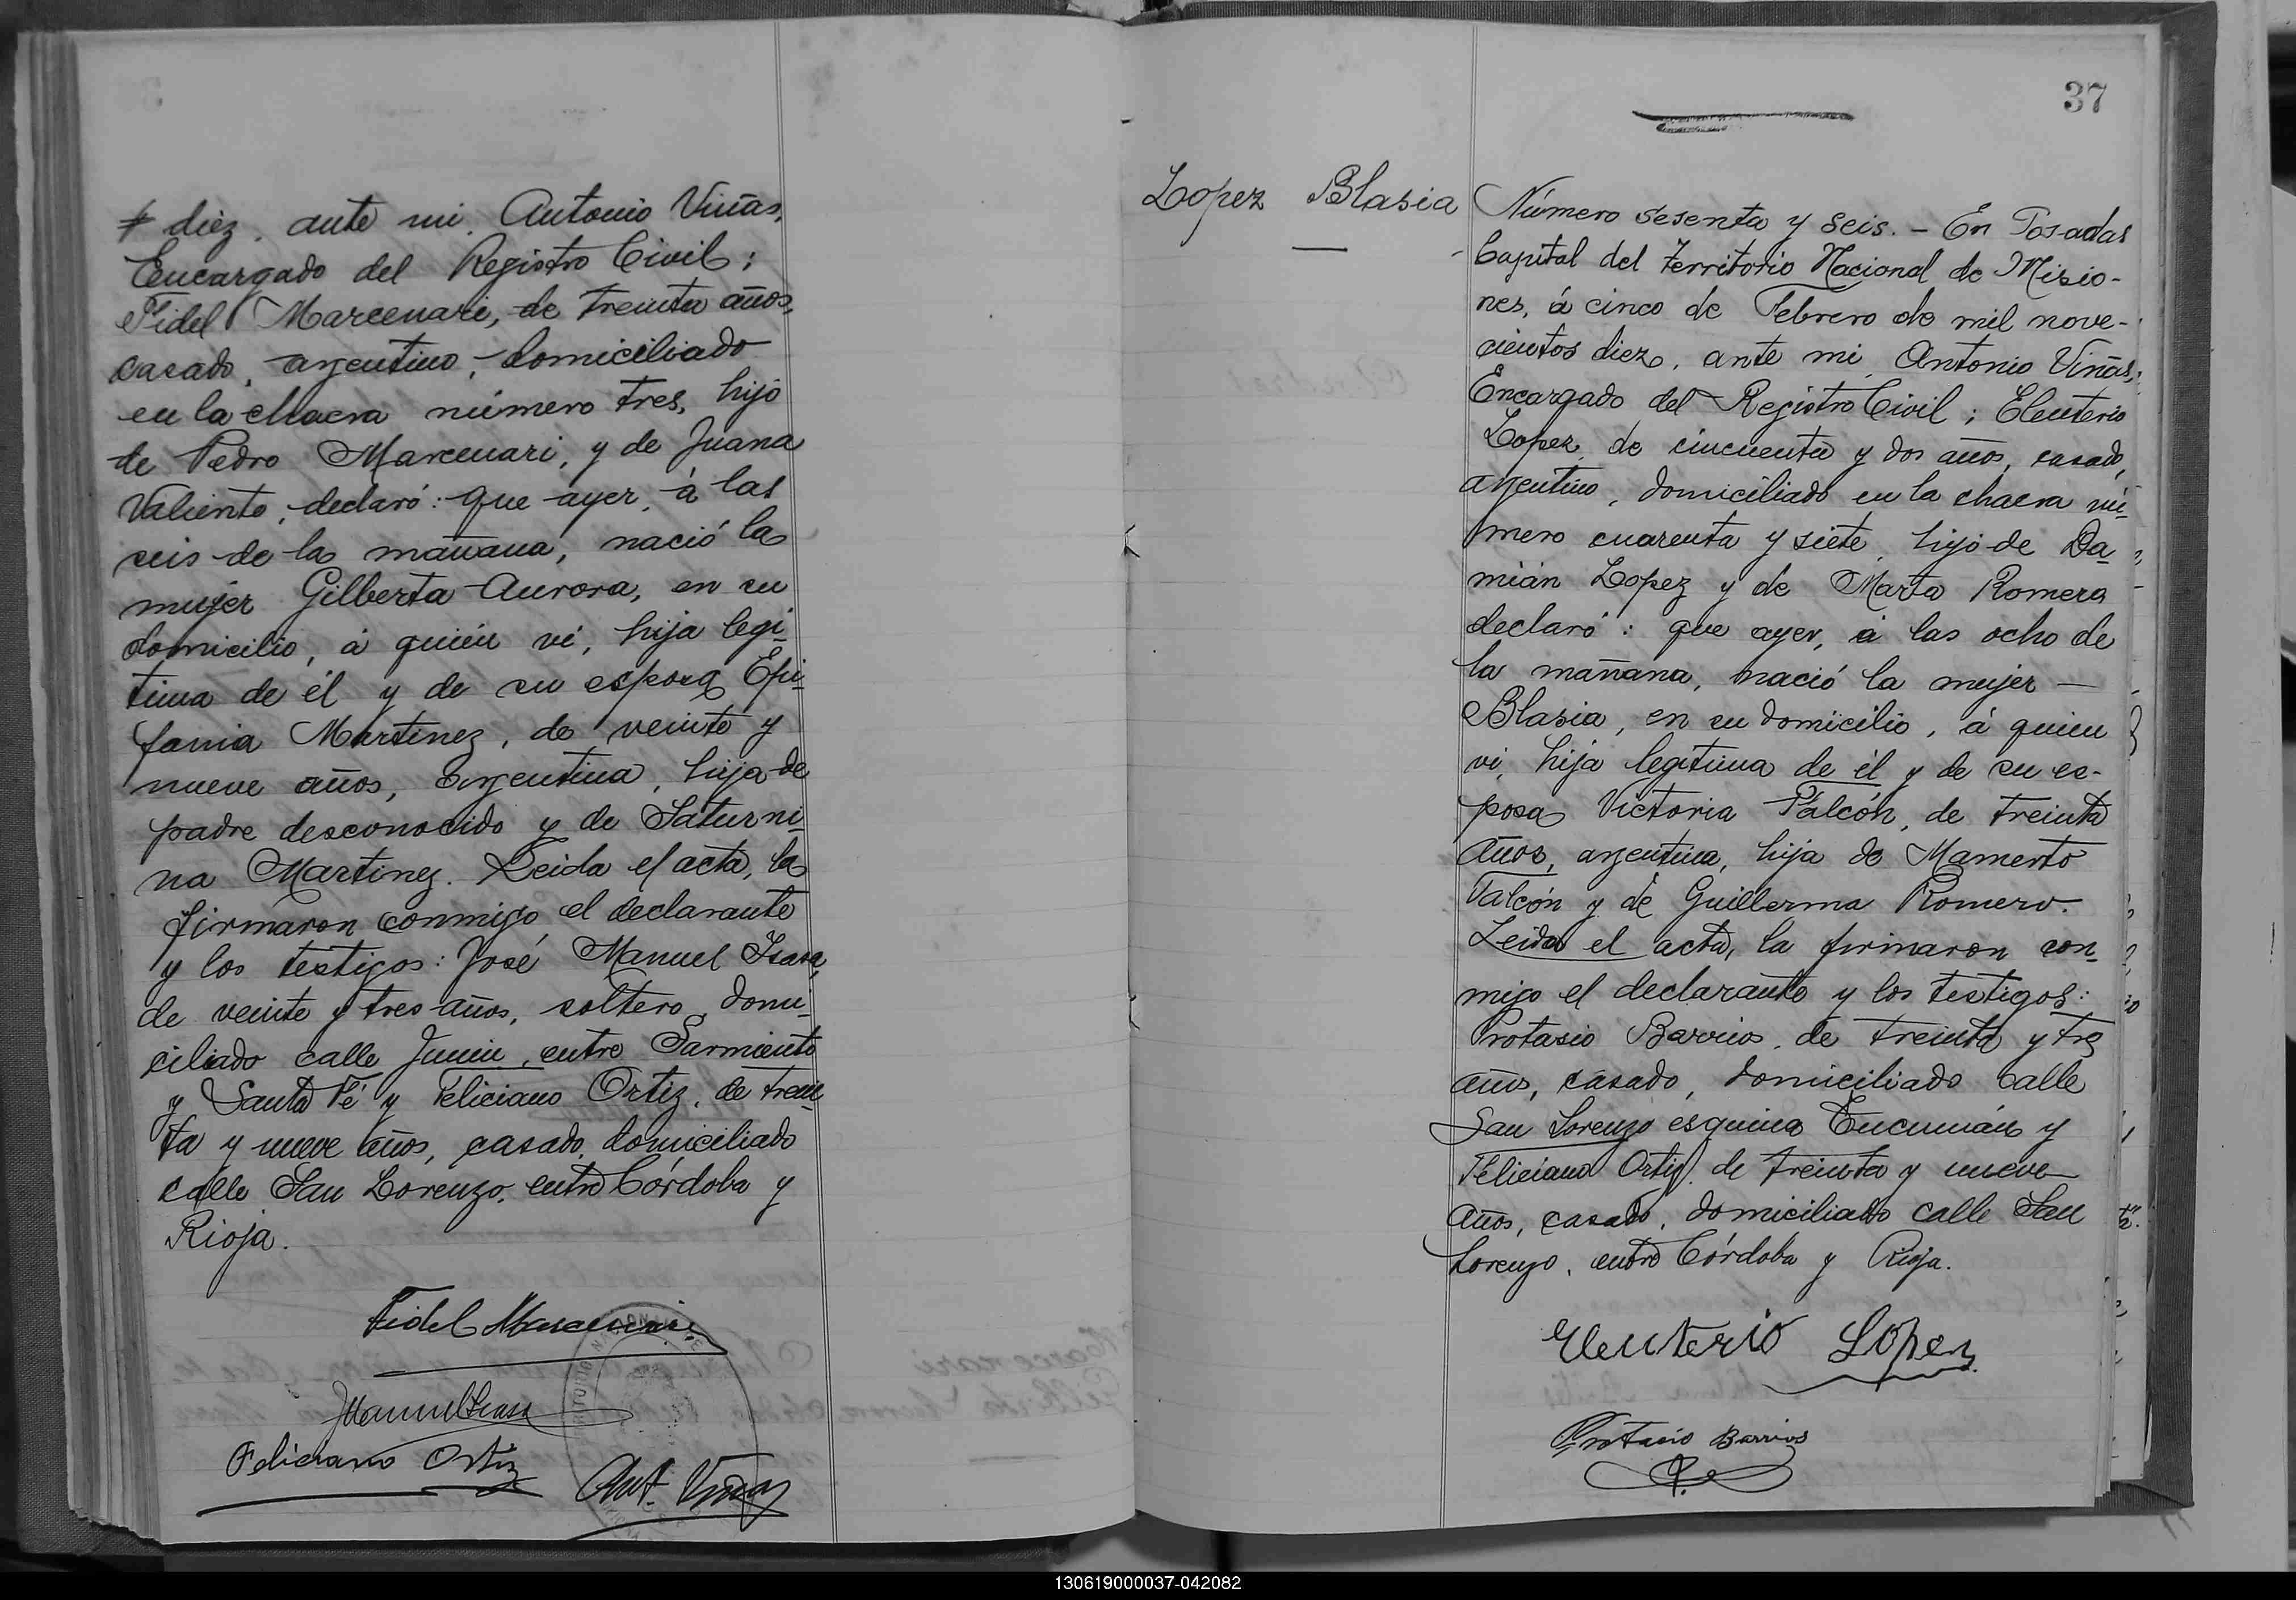 # diez, ante mi, Antonio Viñas,
Encargado del Registro Civil;
Fidel Marcenari, de treinta años,
casado, argentino, domiciliado
en la chacra número tres, hijo
de Pedro Marcenari, y de Juana
Valiente, declaró: que ayer, á las
seis de la mañana, nació la
mujer Gilberta Aurora, en su
domicilio, á quién ví, hija legí-
tima de él y de su esposa Epi-
fania Martinez, de veinte y
nueve años, argentina, hija de
padre desconocido y de Saturni-
na Martinez. Leida el acta, la
firmaron conmigo, el declarante
y los testigos: José Manuel Isasa,
de veinte y tres años, soltero, domi-
ciliado calle Junin, entre Sarmiento
y Santa Fé y Feliciano Ortiz, de trein-
ta y nueve años, casado, domiciliado
calle San Lorenzo, entre Córdoba y
Rioja.
Fidel Marcenari
JManuel Isasa
Feliciano Ortiz
Ant. Viñas
37
Lopez Blasia
Número sesenta y seis. - En Posadas
Capital del Territorio Nacional de Misio-
nes, á cinco de Febrero de mil nove-
cientos diez, ante mi, Antonio Viñas,
Encargado del Registro Civil; Eleuterio
Lopez, de cincuenta y dos años, casado,
argentino, domiciliado en la chacra nú-
mero cuarenta y siete, hijo de Da-
mián Lopez y de Marta Romera
declaró: que ayer, á las ocho de
la mañana, nació la mujer —
Blasia, en su domicilio, á quien
ví, hija legítima de él y de su es-
posa Victoria Falcón, de treinta
años, argentina, hija de Mamerto
Falcón y de Guillerma Romero.
Leida el acta, la firmaron con-
migo el declarante y los testigos:
Protasio Barrios, de treinta y tres
años, casado, domiciliado calle
San Lorenzo esquina Tucumán y
Feliciano Ortiz, de treinta y nueve
años, casado, domiciliado calle San
Lorenzo, entre Córdoba y Rioja.
Eleuterio Lopez
Protasio Barrios
130619000037-042082